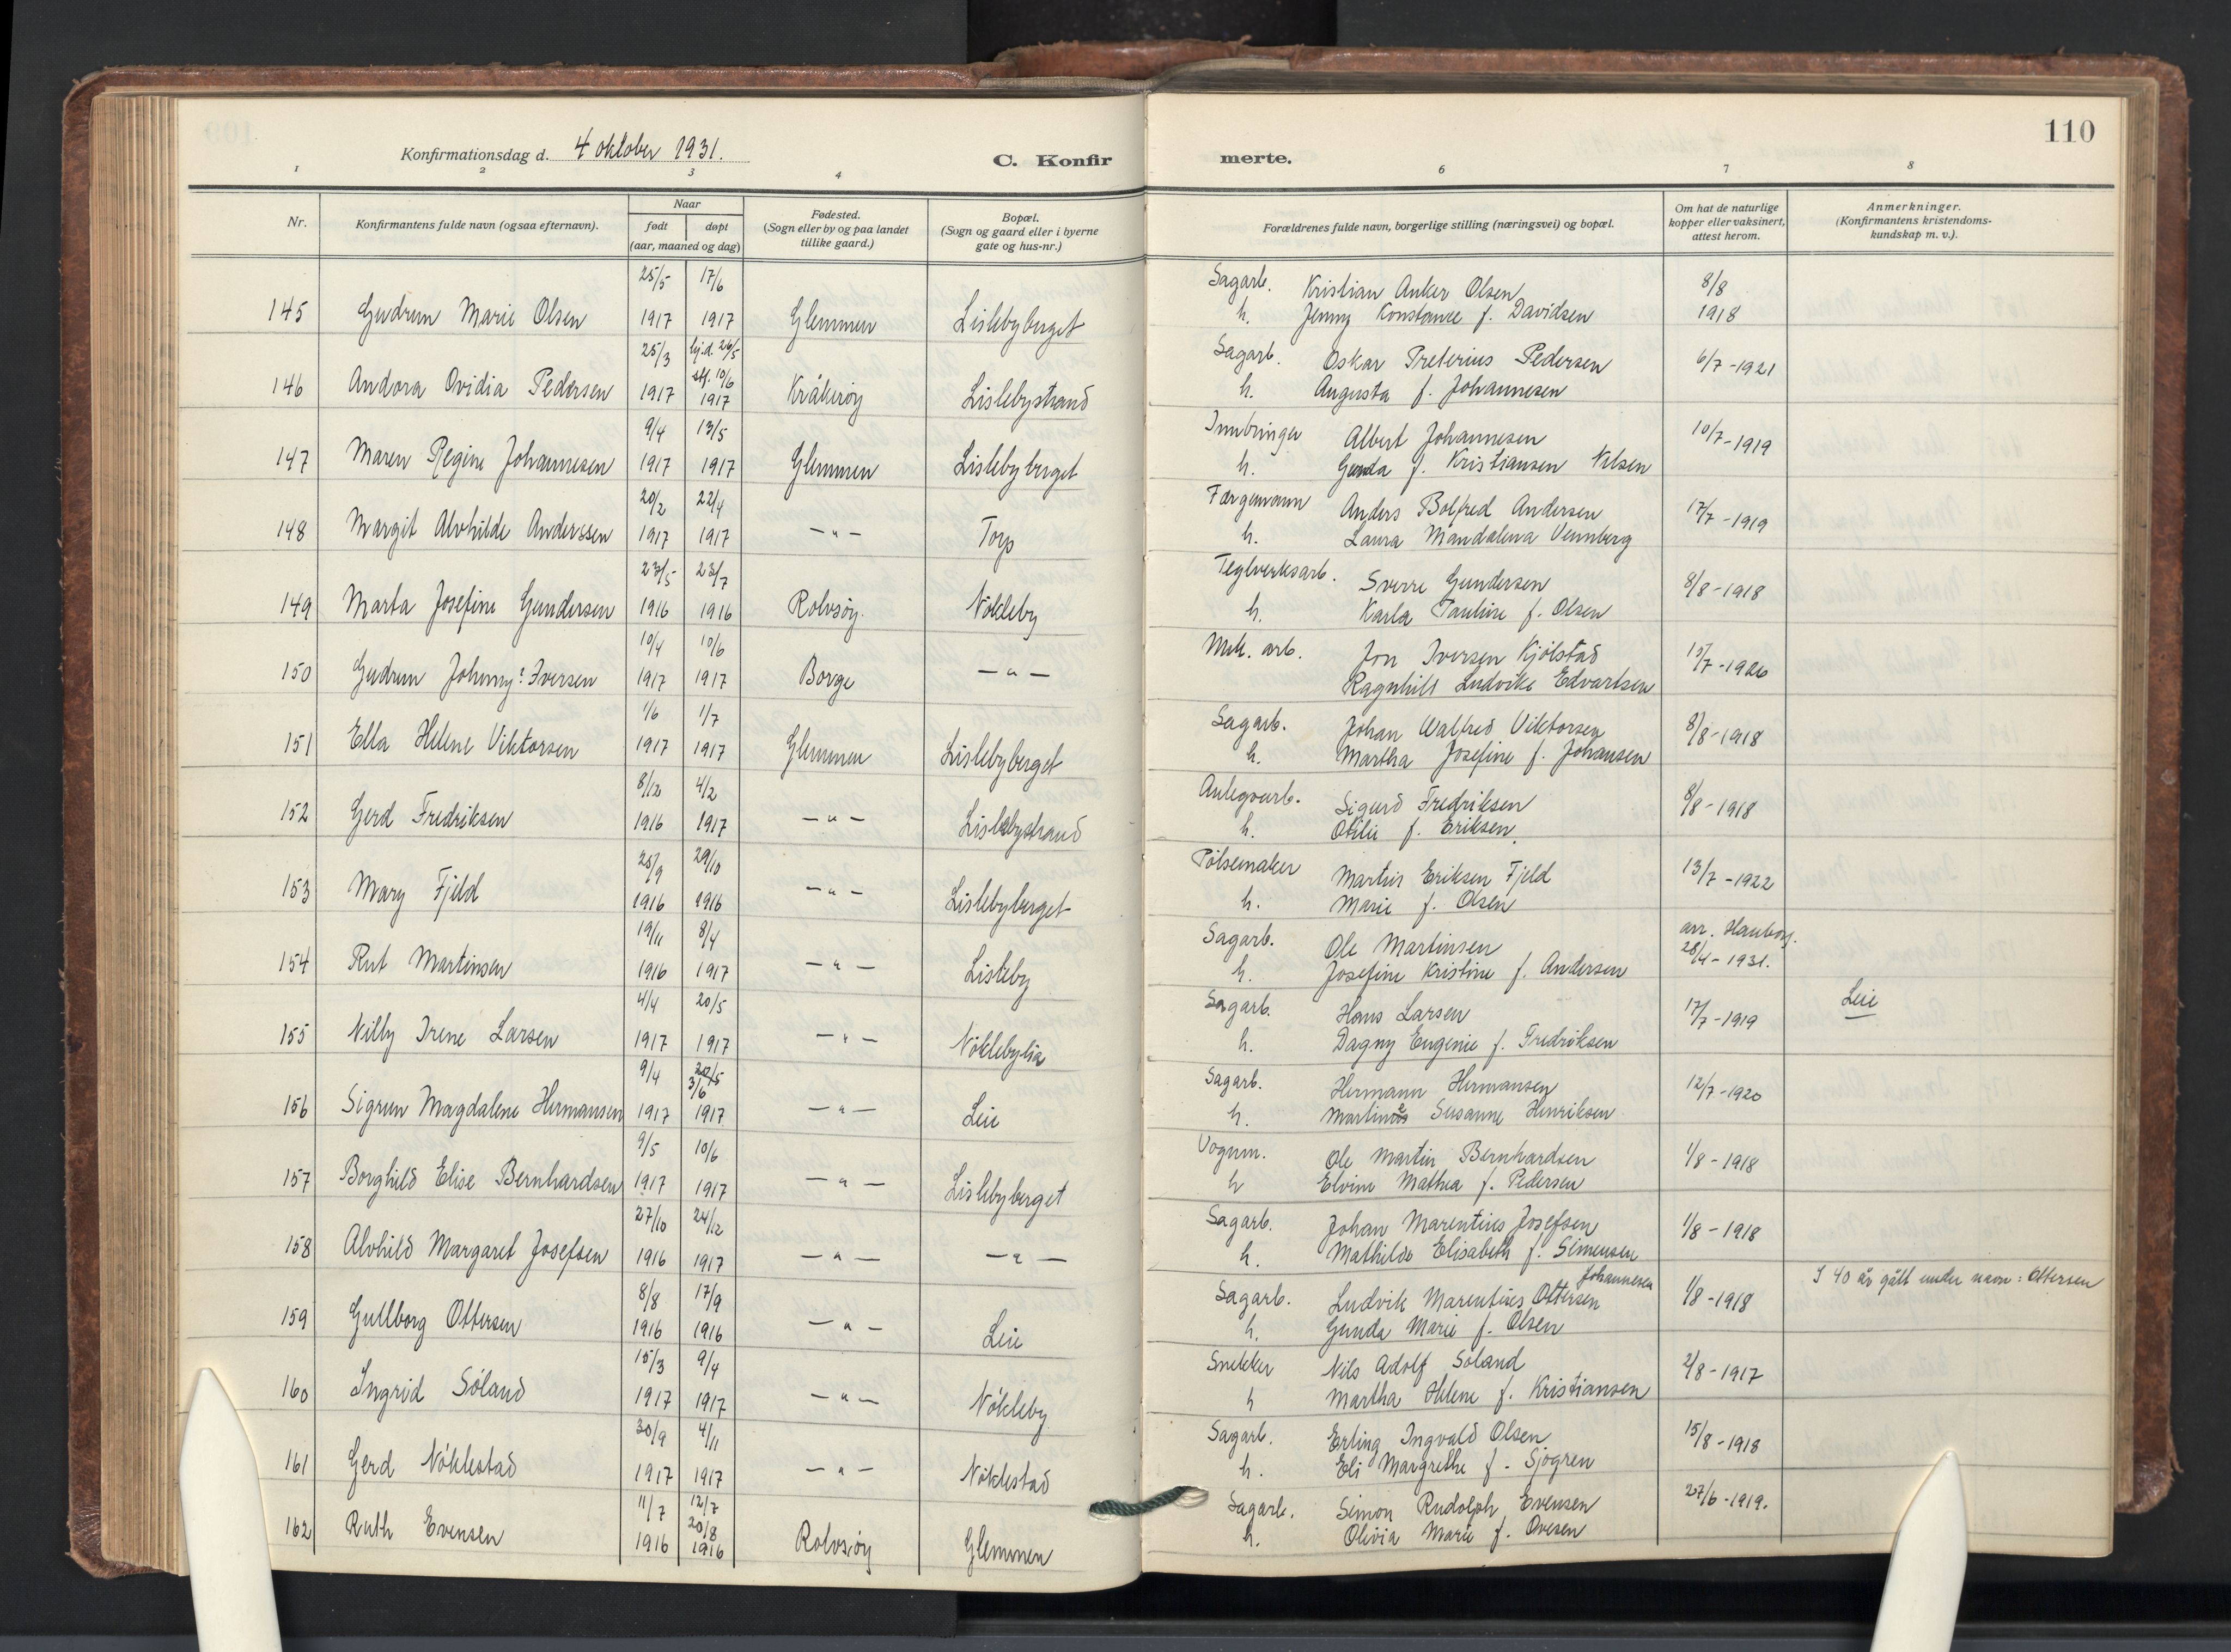 110
Konfirmationsdag d. 4 oktober 1931.
C. Konfir merte.
1 2 3 4 6 7 8
Nr.
Konfirmantens fulde navn (ogsaa efternavn).
Naar
født døpt
(aar, maaned og dag)
Fødested.
(Sogn eller by og paa landet
tillike gaard.)
Bopæl.
(Sogn og gaard eller i byerne
gate og hus-nr.)
Forældrenes fulde navn, borgerlige stilling (næringsvei) og bopæl.
Om hat de naturlige
kopper eller vaksinert,
attest herom.
Anmerkninger.
(Konfirmantens kristendoms-
kundskap m. v.).
25/5 17/6 Sagarb. Kristian Anker Olsen 8/8
145 Gudrun Marie Olsen 1917 1917 Glemmen Lislebyberget h. Jenny Konstanse f. Davidsen 1918
25/3 hj.d. 26/5 Sagarb. Oskar Preterius Pedersen 6/7-1921
stf. 10/6
146 Andora Ovidia Pedersen 1917 1917 Kråkerøy Lislebystrand h. Augusta f. Johannesen
9/4 13/5 Innbringer Albert Johannesen 10/7-1919
147 Maren Regine Johannesen 1917 1917 Glemmen Lislebyberget h. Gunda f. Kristiansen Nilsen
20/2 22/4 Færgemann Anders Bolfred Andersen 17/7-1919
148 Margit Alvhilde Anderssen 1917 1917 -"- Torp h. Laura Mandalena Vennberg
27/5 23/7 Teglverksarb. Sverre Gundersen 8/8-1918
149 Marta Josefine Gundersen 1916 1916 Rolvsøy. Nökleby h. Karla Pauline f. Olsen
10/4 10/6 Mek. arb. Jon Iversen Kjölstad 15/7-1926
150 Gudrun Johnny? Iversen 1917 1917 Borge -"- Ragnhill Ludvike Edvartsen
1/6 1/7 Sagarb. Johan Walfred Viktorsen 8/8-1918
151 Ella Helene Viktorsen 1917 1917 Glemmen Lislebyberget h. Martha Josefine f. Johansen
8/12 4/2 Anlegsarb. Sigurd Fredriksen 8/8-1918
152 Gerd Fredriksen 1916 1917 -"- Lislebystrand h. Otilie f. Eriksen.
25/9 29/10 Pölsemaker Martin Eriksen Fjeld 13/7-1922
153 Mary Fjeld 1916 1916 -"- Lislebyberget h. Marie f. Olsen
19/11 8/4 Sagarb. Ole Martinsen arr. Hauborg.
154 Rut Martinsen 1916 1917 -"- Lisleby h. Josefine Kristine f. Andersen 28/4-1931.
4/4 20/5 Sagarb. Hans Larsen 17/7-1919 Leie
155 Nilly Irene Larsen 1917 1917 -"- Nöklebylia h. Dagny Eugenie f. Fredriksen
9/4 20/5 Sagarb. Hermann Hermansen 12/7-1920
3/6
156 Sigrun Magdalene Hermansen 1917 1917 -"- Leie h. Martine Susanne Henriksen
9/5 10/6 Vognm. Ole Martin Bernhardsen 1/8-1918
157 Borghild Elise Bernhardsen 1917 1917 -"- Lislebyberget h Elvine Mathea f. Pedersen
27/10 24/12 Sagarb. Johan Marentius Josefsen 1/8-1918
158 Alvhild Margaret Josefsen 1916 1917 -"- -"- h. Mathilde Elisabeth f. Simensen
Johannesen
8/8 17/9 Sagarb. Ludvik Marentius Ottersen 1/8-1918 I 40 år gått under navn: Ottersen
159 Gullborg Ottersen 1916 1916 -"- Leie h. Gunda Marie f. Olsen
15/3 9/4 Snekker Nils Adolf Soland 2/8-1917
160 Ingrid Söland 1917 1917 -"- Nökleby h Martha Helene f. Kristiansen
30/9 4/11 Sagarb. Erling Ingvald Olsen 15/8-1918
161 Gerd Nöklestad 1917 1917 -"- Nöklestad h. Eli Margrethe f. Sjögren
11/7 12/7 Sagarb. Simon Rudolph Evensen 27/6-1919.
20/8
162 Ruth Evensen 1916 1916 Rolvsøy Glemmen h. Olivia Marie f. Ovesen